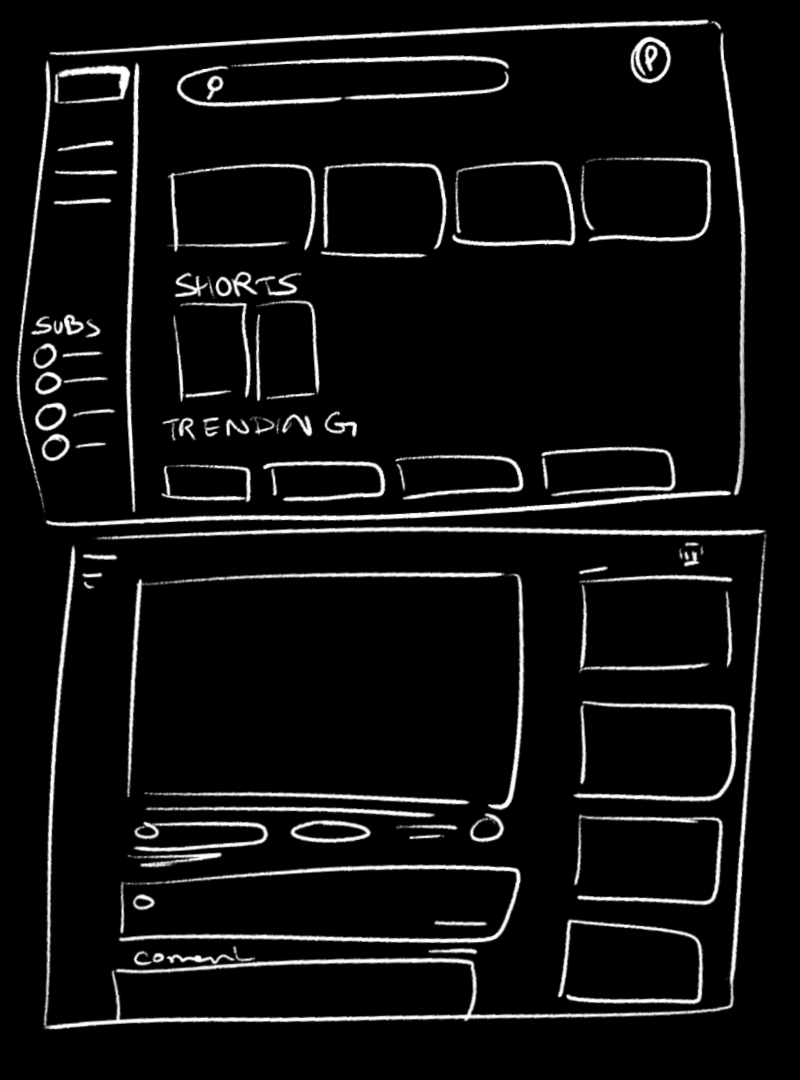 P
SHORTS
SUBS
TRENDING
coment